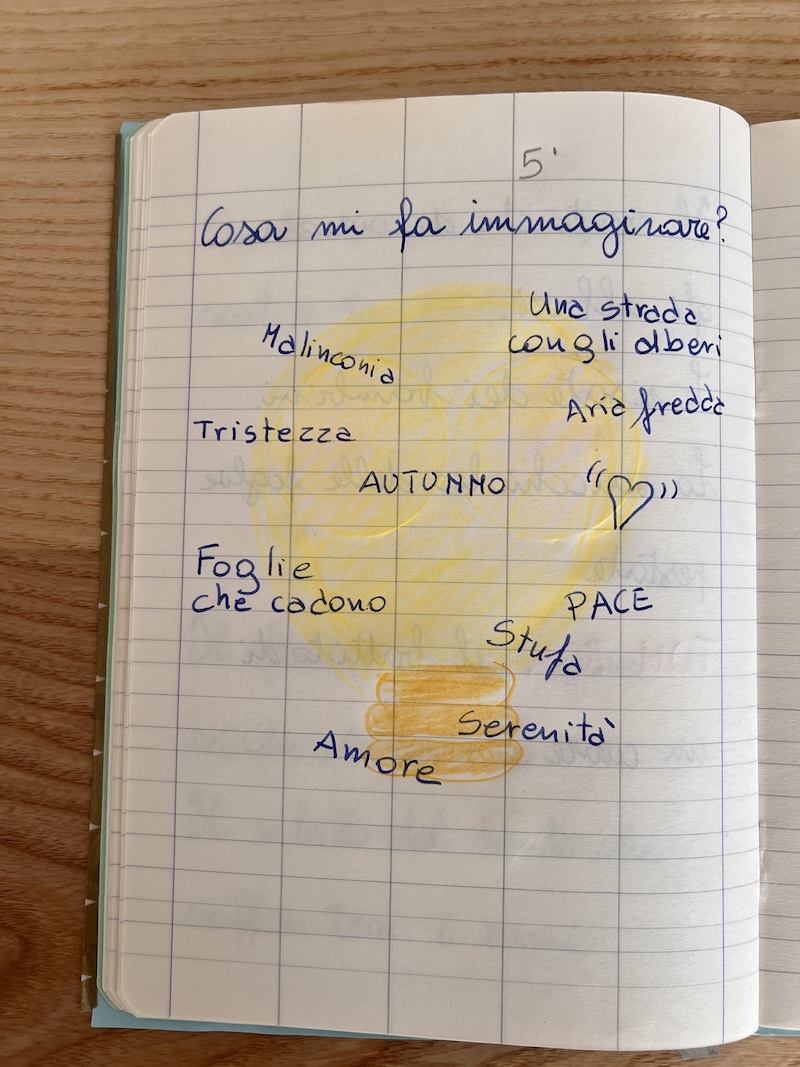 5'
Cosa mi fa immaginare?
Una strada
con gli alberi
Malinconia
Aria fredda
Tristezza
AUTUNNO
"♡"
Foglie
che cadono
PACE
Stufa
Serenità
Amore